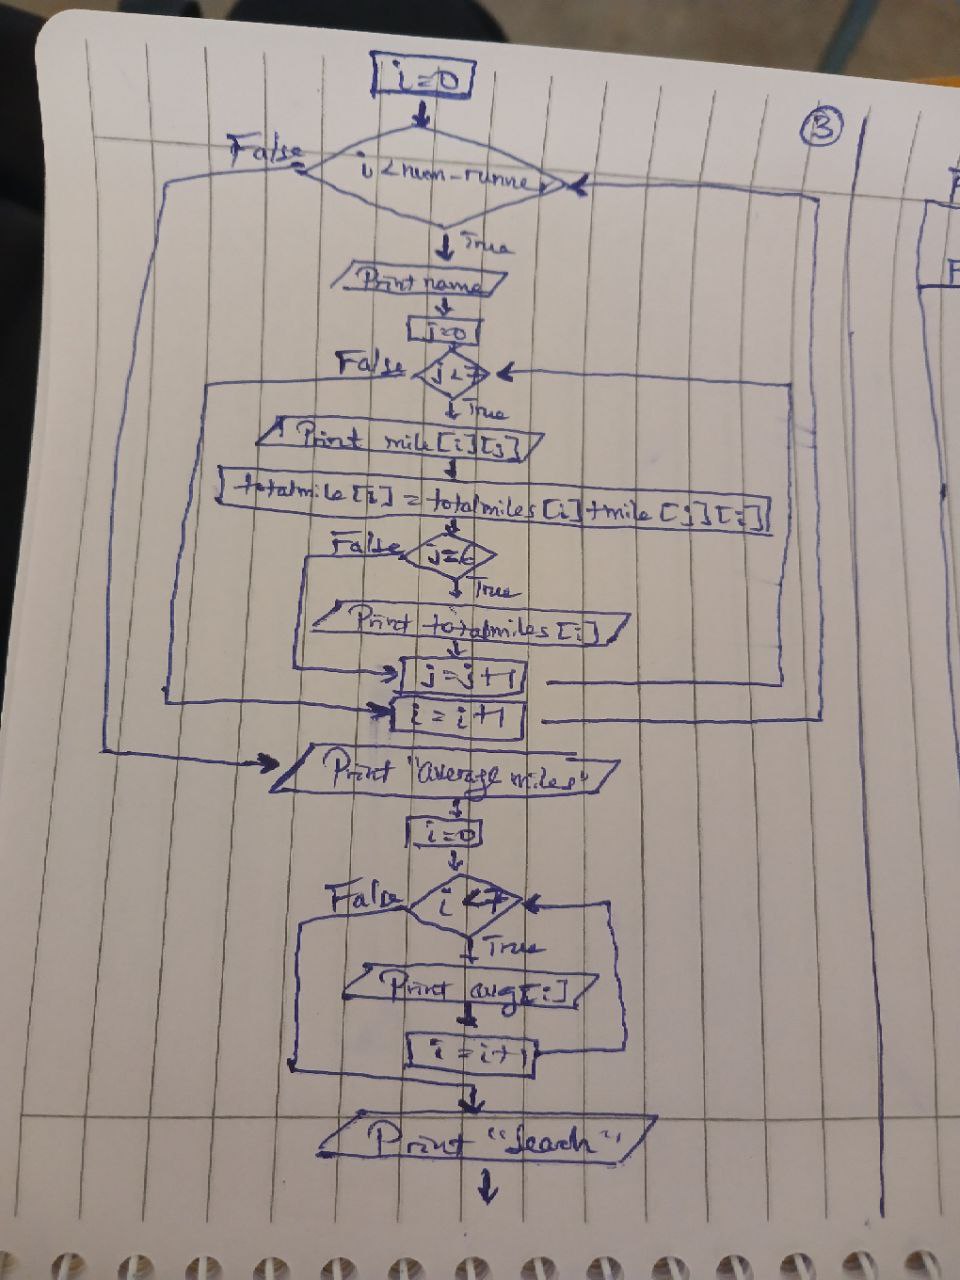 i=0
3
False
i<num-runne
True
Print name
j=0
False
j<7
True
Print mile[i][j]
totalmile[i]=totalmiles[i]+mile[j][i]
False
j=6
True
Print totalmiles[i]
j=j+1
i=i+1
Print "average miles"
i=0
False
i<7
True
Print avg[i]
i=i+1
Print "Search"